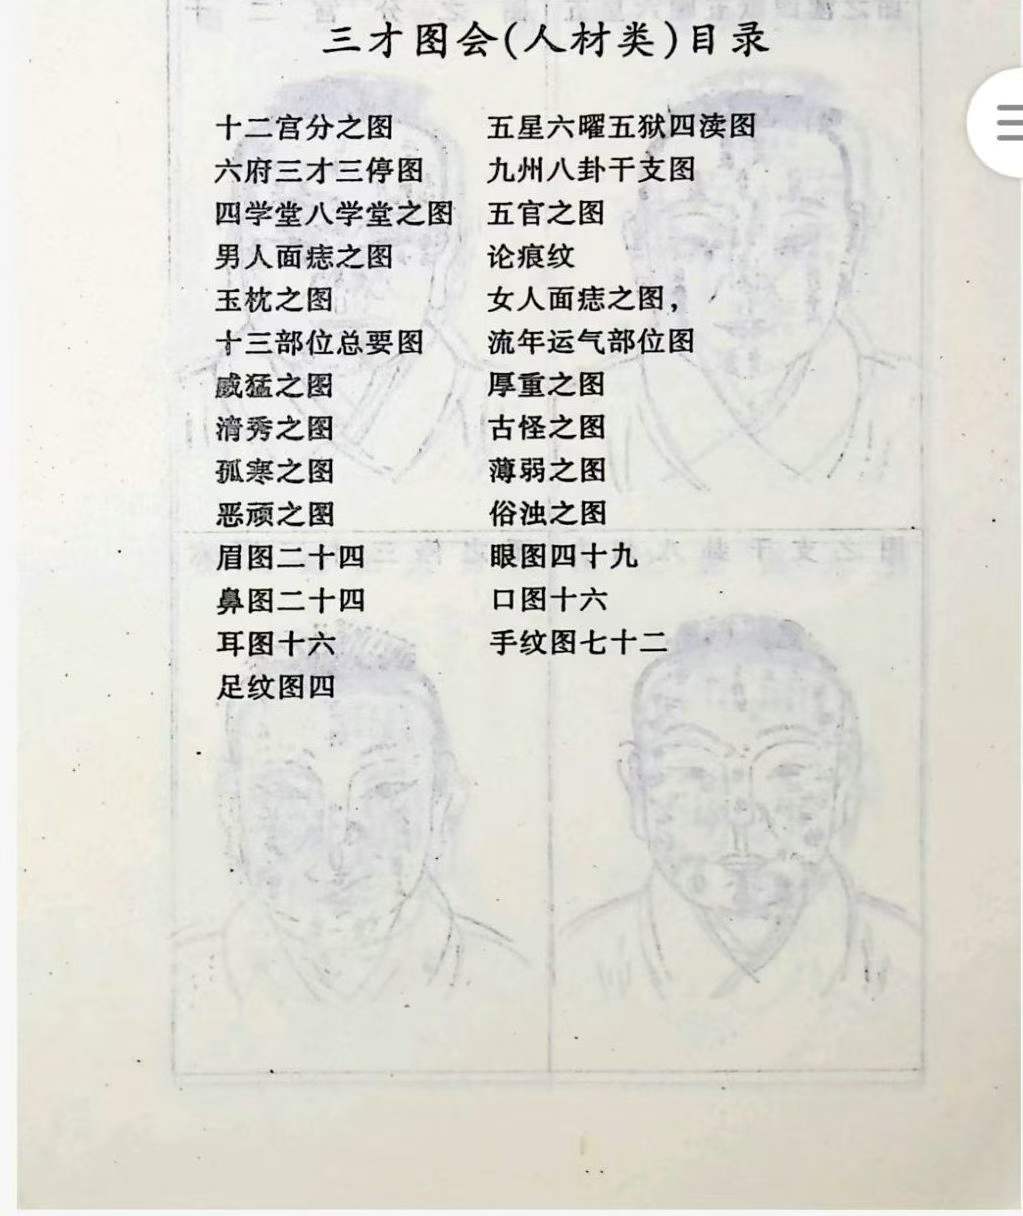 三才图会(人材类)目录
十二宫分之图 五星六曜五狱四渎图
六府三才三停图 九州八卦干支图
四学堂八学堂之图 五官之图
男人面痣之图 论痕纹
玉枕之图 女人面痣之图,
十三部位总要图 流年运气部位图
威猛之图 厚重之图
清秀之图 古怪之图
孤寒之图 薄弱之图
恶顽之图 俗浊之图
眉图二十四 眼图四十九
鼻图二十四 口图十六
耳图十六 手纹图七十二
足纹图四